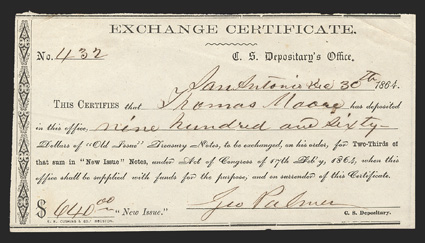 EXCHANGE CERTIFICATE.
No. 432 C. S. Depositary's Office,
San Antonio 30th 1864.
THIS CERTIFIES that Thomas Moore has deposited
in this office, nine hundred and sixty
Dollars of "Old Issue" Treasury Notes, to be exchanged, on his order, for Two-Thirds of
that sum in "New Issue" Notes, under Act of Congress of 17th Feb'y, 1864, when this
office shall be supplied with funds for the purpose, and on surrender of this Certificate.
$ 640 00 "New Issue." Geo Palmer
C. S. Depositary.